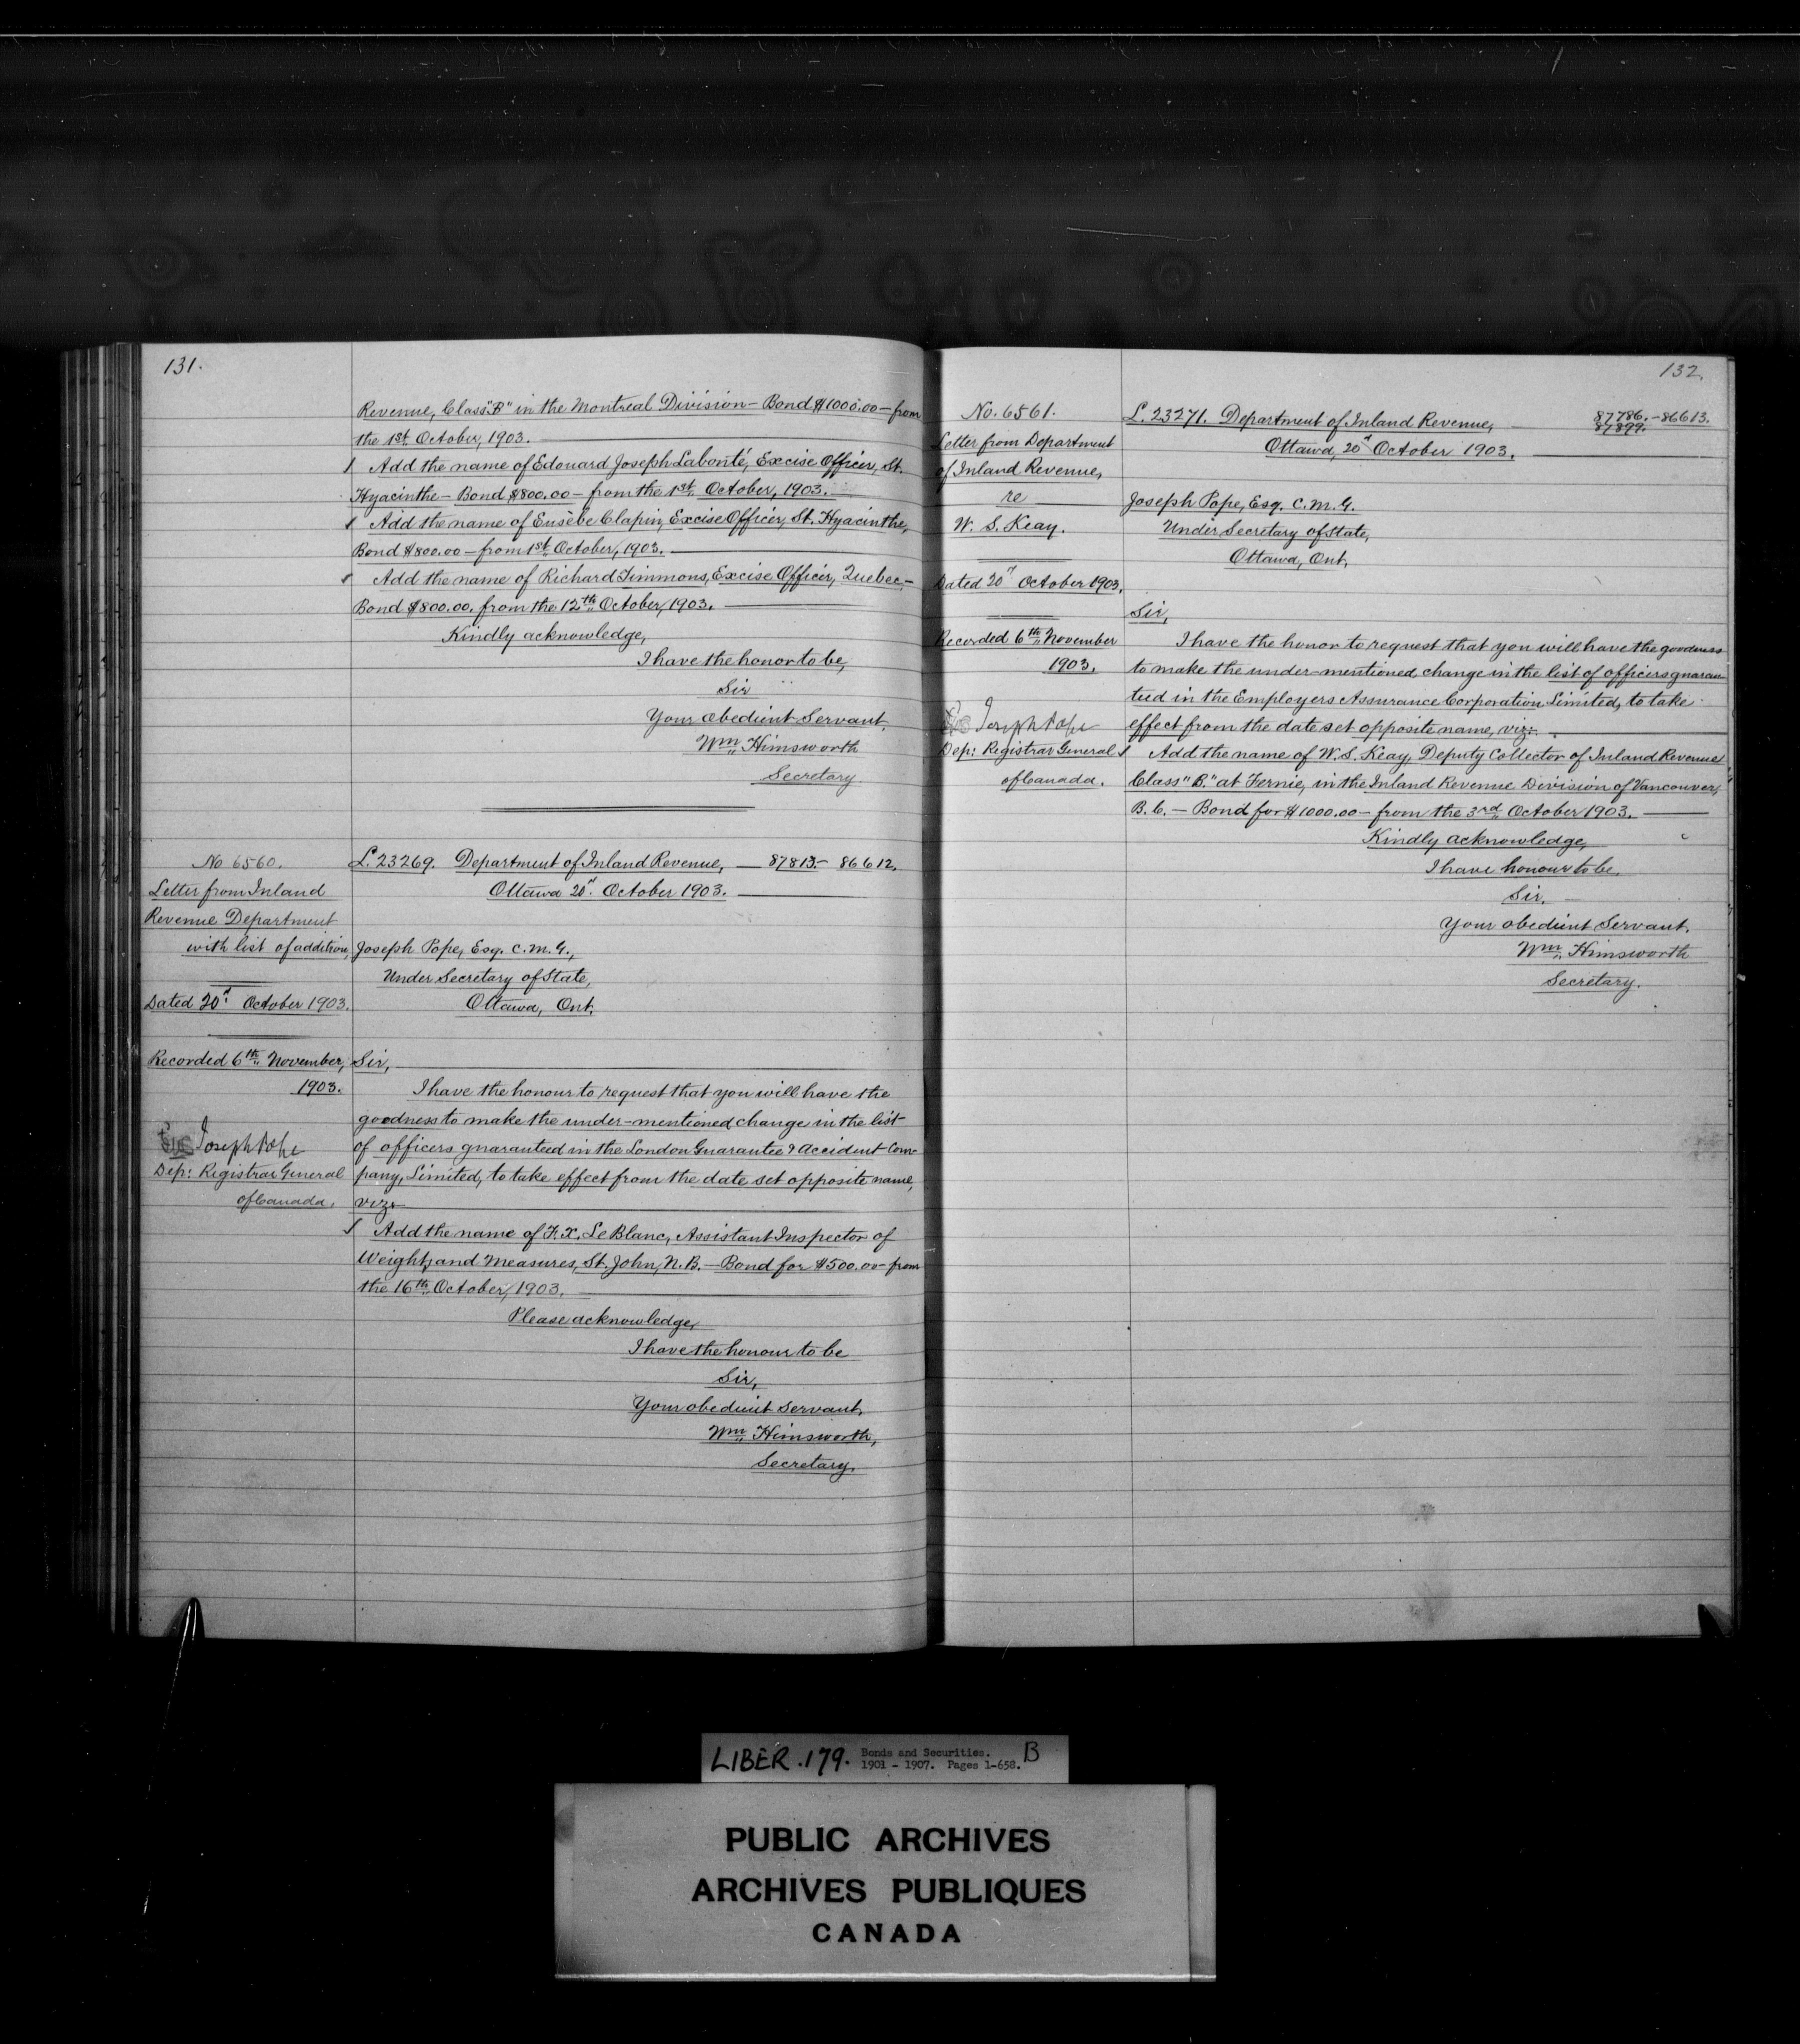 131.
Revenue, Class "B" in the Montreal Division – Bond $1000.00 – from
the 1st October, 1903.
Add the name of Edouard Joseph Labonté, Excise Officer, St.
Hyacinthe – Bond $800.00 – from the 1st October, 1903.
Add the name of Eusèbe Clapin, Excise Officer, St. Hyacinthe,
Bond $800.00 – from 1st October, 1903.
Add the name of Richard Timmons, Excise Officer, Quebec, –
Bond $800.00. from the 12th October, 1903.
Kindly acknowledge,
I have the honor to be,
Sir
Your obedient Servant,
Wm Himsworth
Secretary
No 6560.
Letter from Inland
Revenue Department
with list of addition,
Dated 20th October 1903.
Recorded 6th November,
1903.
Joseph Pope
Dep: Registrar General
of Canada.
L. 23269. Department of Inland Revenue, — 87813 – 86612.
Ottawa 20th October 1903.
Joseph Pope, Esq. C.M.G.,
Under Secretary of State,
Ottawa, Ont.
Sir,
I have the honour to request that you will have the
goodness to make the under-mentioned change in the list
of officers guaranteed in the London Guarantee & Accident Com-
pany, Limited, to take effect from the date set opposite name,
viz.
Add the name of F. X. LeBlanc, Assistant Inspector of
Weights and Measures, St. John, N.B. – Bond for $500.00 – from
the 16th October, 1903.
Please acknowledge,
I have the honour to be
Sir,
Your obedient Servant,
Wm Himsworth,
Secretary.
132.
No. 6561.
Letter from Department
of Inland Revenue,
re
W. S. Keay.
Dated 20th October 1903.
Recorded 6th November
1903.
Joseph Pope
Dep: Registrar General
of Canada.
L. 23271. Department of Inland Revenue, 87786. – 86613.
87899.
Ottawa, 20th October 1903.
Joseph Pope, Esq. C.M.G.
Under Secretary of State,
Ottawa, Ont,
Sir,
I have the honor to request that you will have the goodness
to make the under-mentioned change in the list of officers guaran-
teed in the Employers Assurance Corporation Limited, to take
effect from the date set opposite name, viz.
Add the name of W. S. Keay, Deputy Collector of Inland Revenue
Class "B." at Fernie, in the Inland Revenue Division of Vancouver,
B. C. – Bond for $1000.00 – from the 3rd October 1903.
Kindly acknowledge,
I have honour to be,
Sir,
Your obedient Servant.
Wm Himsworth
Secretary.
LIBER .179. Bonds and Securities. B
1901 - 1907. Pages 1-658.
PUBLIC ARCHIVES
ARCHIVES PUBLIQUES
CANADA